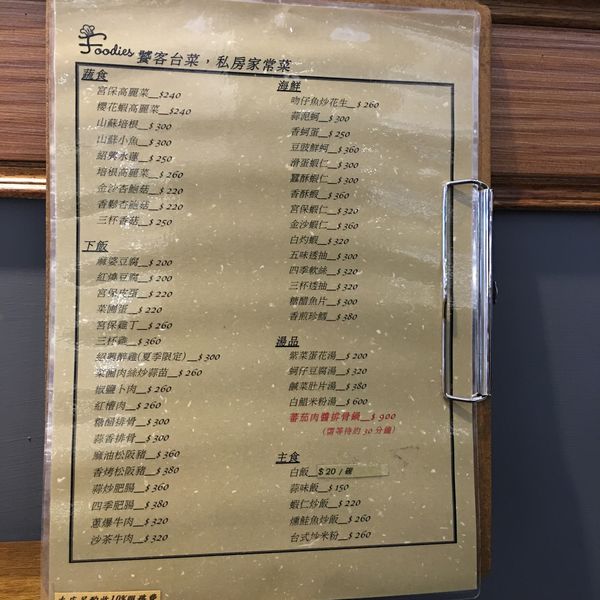 Foodies 饕客台菜，私房家常菜
蔬食
宮保高麗菜__$240
櫻花蝦高麗菜__$240
山蘇培根__$300
山蘇小魚__$300
紹興水蓮__$250
培根高麗菜__$260
金沙杏鮑菇__$220
香鬆杏鮑菇__$220
三杯香菇__$250
下飯
麻婆豆腐__$200
紅燒豆腐__$200
宮保皮蛋__$220
菜圃蛋__$220
宮保雞丁__$260
三杯雞__$360
紹興醉雞(夏季限定)__$300
菜圃肉絲炒蒜苗__$260
椒鹽卜肉__$260
紅槽肉__$260
糖醋排骨__$300
蒜香排骨__$300
麻油松阪豬__$360
香烤松阪豬__$380
蒜炒肥腸__$360
四季肥腸__$380
蔥爆牛肉__$320
沙茶牛肉__$320
海鮮
吻仔魚炒花生__$260
蒜泥蚵__$300
香蚵蛋__$250
豆豉鮮蚵__$360
滑蛋蝦仁__$300
酥蝦仁__$300
香酥蝦__$360
宮保蝦仁__$320
金沙蝦仁__$360
白灼蝦__$320
五味透抽__$300
四季軟絲__$320
三杯透抽__$320
糖醋魚片__$300
香煎珍鱈__$380
湯品
紫菜蛋花湯__$200
蚵仔豆腐湯__$320
鹹菜肚片湯__$380
白鯧米粉湯__$600
蕃茄肉醬排骨鍋__$900
(需等待約30分鐘)
主食
白飯__$20/碗
蒜味飯__$150
蝦仁炒飯__$220
燻鮭魚炒飯__$260
台式炒米粉__$260